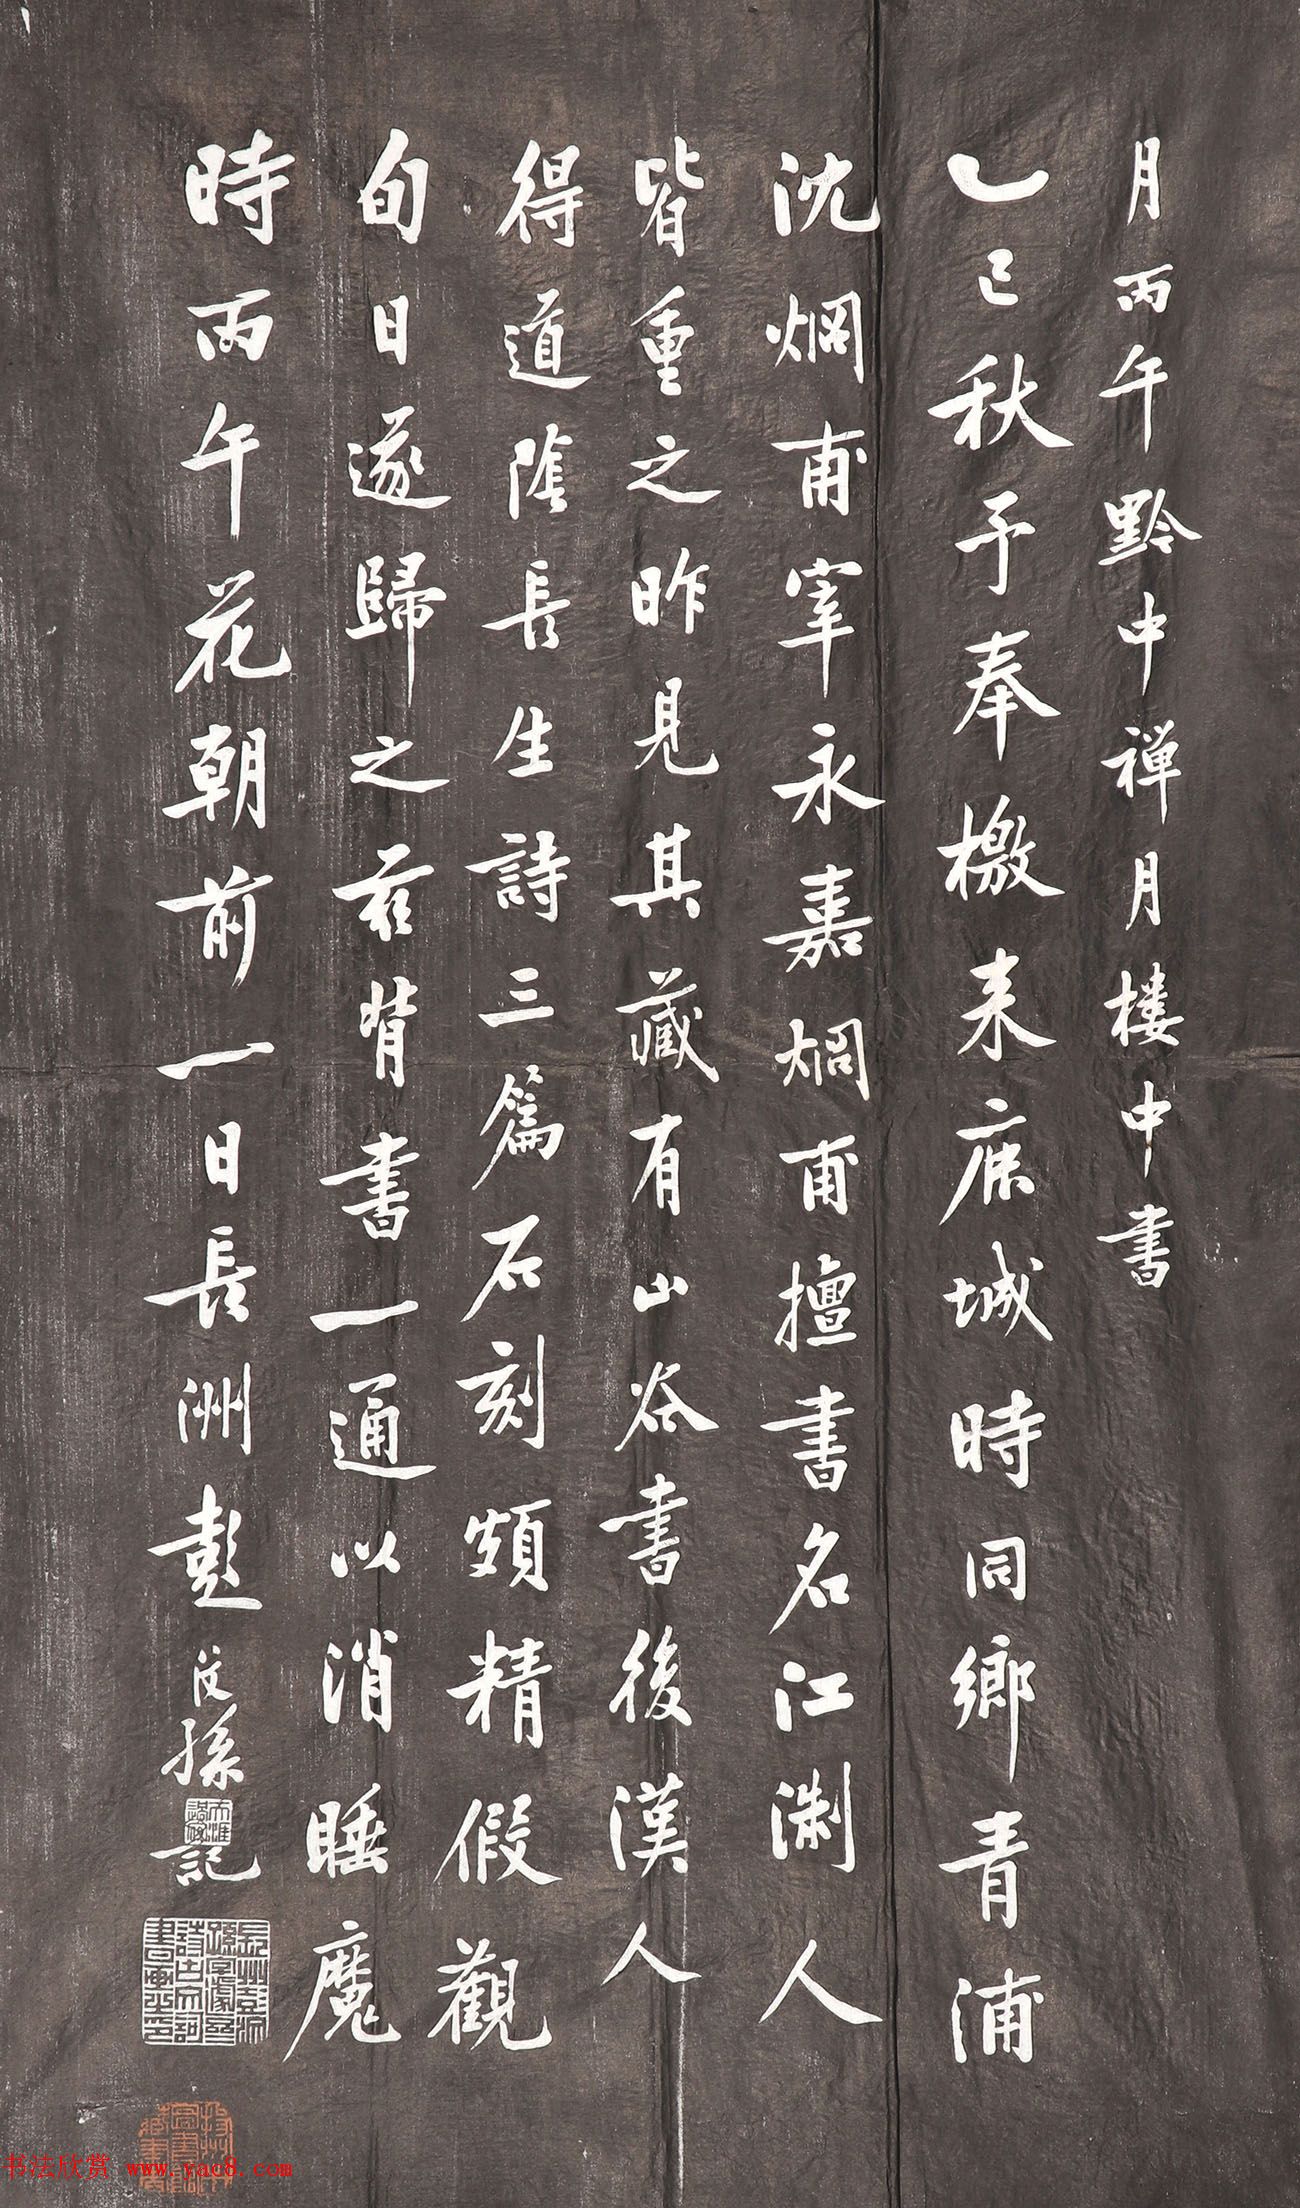 月丙午黔中禅月楼中書
乙巳秋予奉檄来鹿城時同鄉青浦
沈烱甫宰永嘉烱甫擅書名江淛人
皆重之昨見其藏有山谷書後漢人
得道陰長生詩三篇石刻頗精假觀
旬日遂歸之茲背書一通以消睡魔
時丙午花朝前一日長洲彭汶孫記
书法欣赏 www.yac8.com